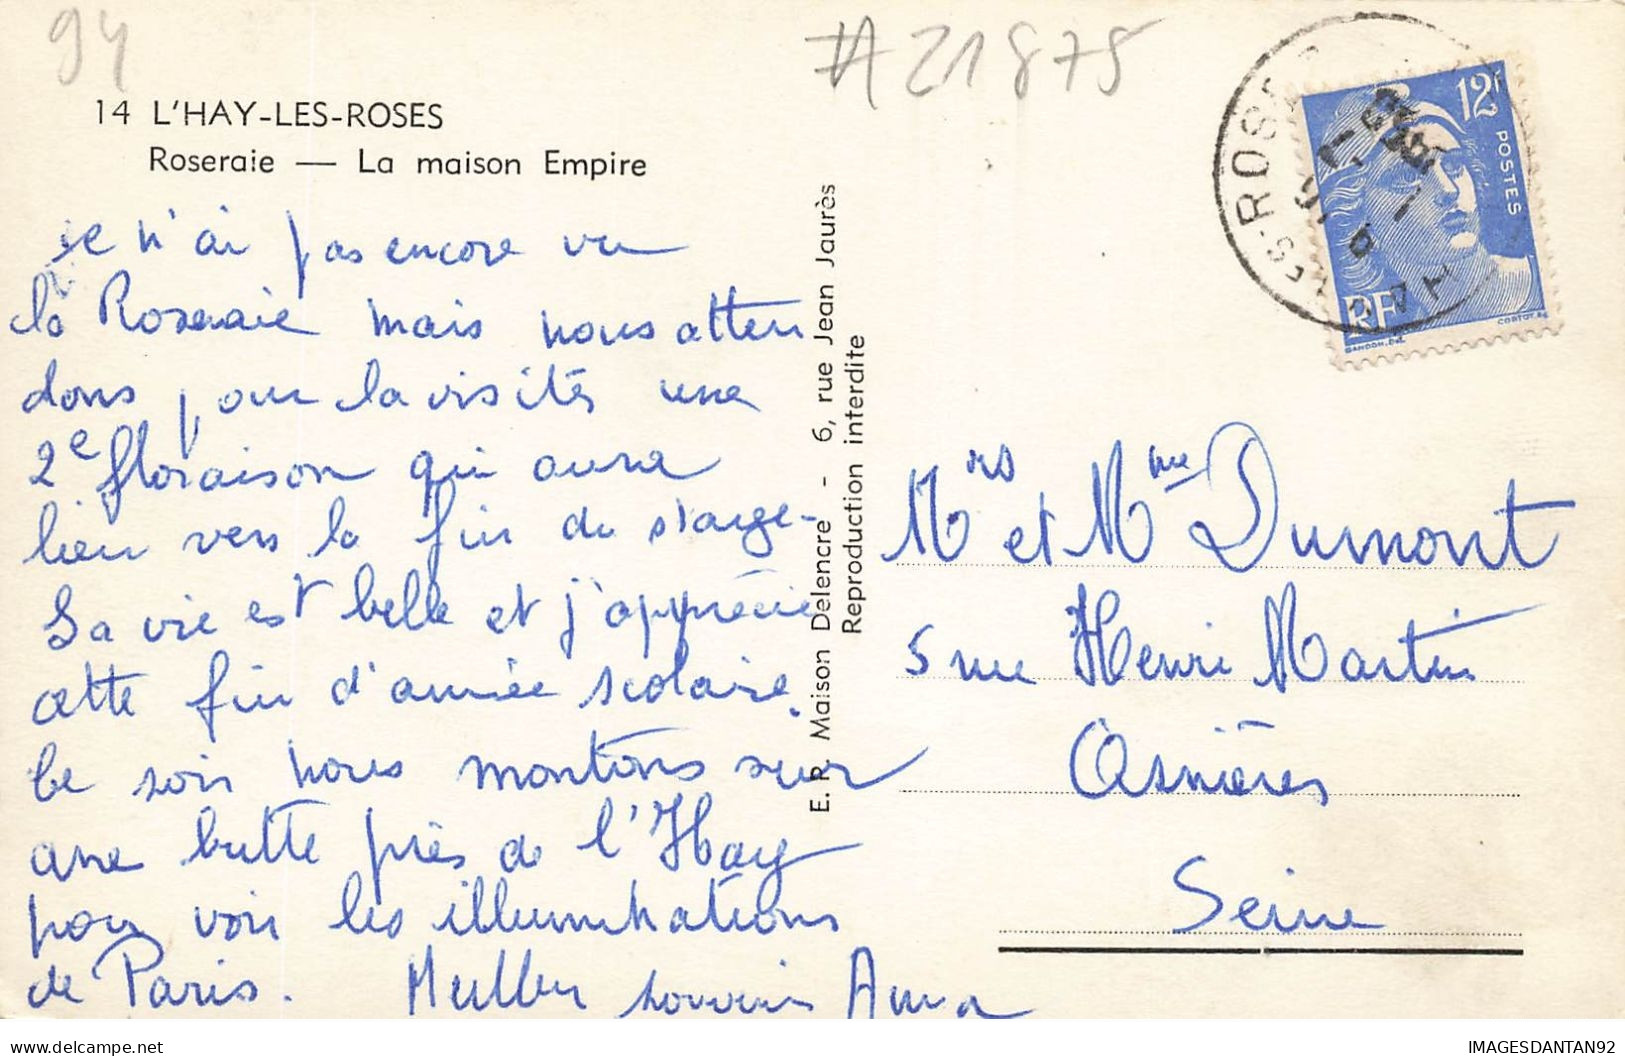 94
# 21875
14 L'HAY-LES-ROSES
Roseraie — La maison Empire
je n'ai pas encore vu
la Roseraie mais nous atten
dons pour la visiter une
2e floraison qui aura
lieu vers la fin du stage.
La vie est belle et j'apprécie
cette fin d'année scolaire.
Ce soir nous montons sur
une butte près de l'Hay
pour voir les illuminations
de Paris. Meilleurs souvenirs Anna
E. R. Maison Delencre - 6, rue Jean Jaurès
Reproduction interdite
12F
POSTES
RF
GANDON.DEL
CORTOT.SC
Mrs et Mme Dumont
5 rue Henri Martin
Asnières
Seine
IMAGESDANTAN92